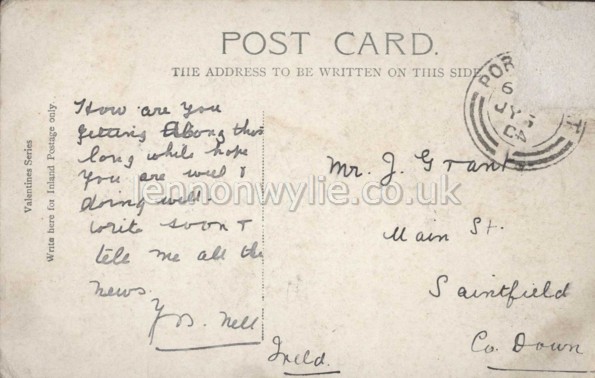 POST CARD.
THE ADDRESS TO BE WRITTEN ON THIS SIDE
Valentines Series
Write here for Inland Postage only.
How are you
getting along this
long while hope
you are well &
doing well.
write soon &
tell me all the
news.
Yrs. Nell
Mr. J. Grant
Main St.
Saintfield
Co. Down
Ireld.
POR
6
JY
04
T
lennonwylie.co.uk